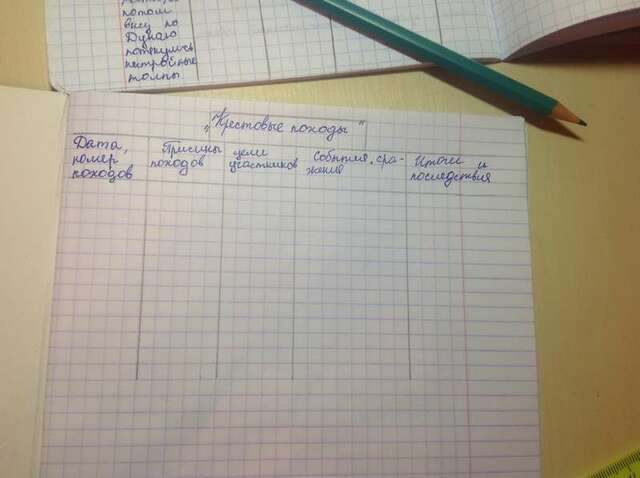 потом
вниз по
Дунаю
потянулись
нестройные
толпы
„Крестовые походы"
Дата,
номер
походов
Причины
походов
цели
участников
События, сра-
жения
Итоги и
последствия